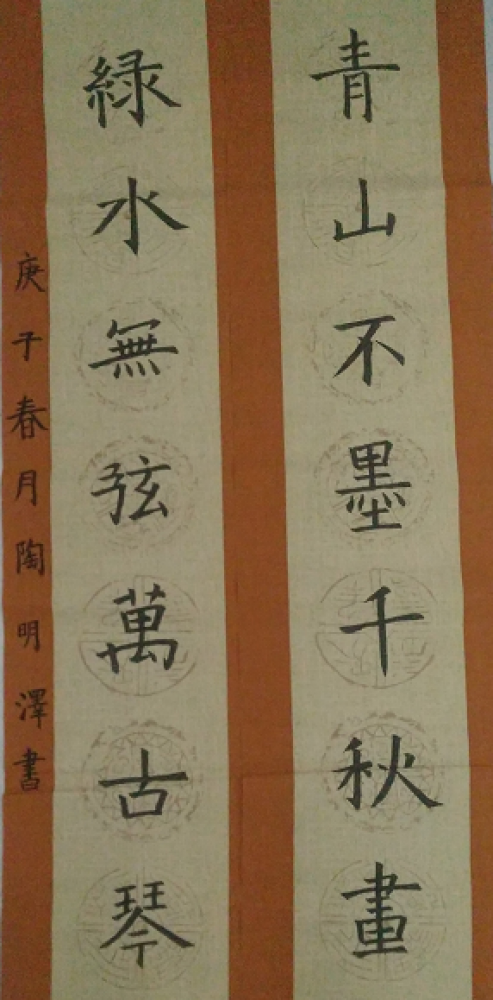 青山不墨千秋畫
綠水無弦萬古琴
庚子春月陶明澤書